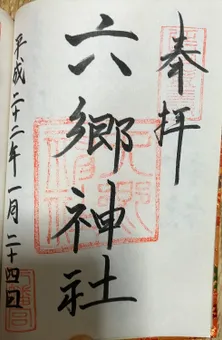 奉拝
六郷神社
平成二十二年一月二十四日